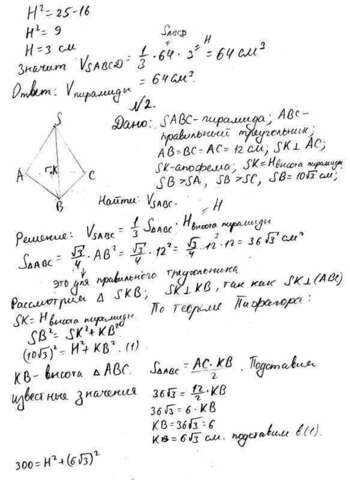 H² = 25-16
H² = 9
H = 3 см
Значит V_SABCD = 1/3 · 64 · 3 = 64 см³
S_ABCD
H
Ответ: V пирамиды = 64 см³
N2.
S
A
K
C
B
Дано: SABC - пирамида; ABC -
правильный треугольник;
AB=BC=AC=12 см; SK⊥AC;
SK-апофема; SK=H высота пирамиды
SB>SA, SB>SC, SB=10√3 см;
Найти: V_SABC.
Решение: V_SABC = 1/3 S_ΔABC · H высота пирамиды
= H
S_ΔABC = √3/4 · AB² = √3/4 · 12² = √3/4 · 12 · 12 = 36√3 см²
это для правильного треугольника
Рассмотрим Δ SKB; SK⊥KB, так как SK⊥(ABC)
SK = H высота пирамиды По теореме Пифагора:
SB² = SK² + KB²
(10√3)² = H² + KB². (1)
KB - высота ΔABC. S_ΔABC = AC·KB/2. Подставим
известные значения 36√3 = 12/2 · KB
36√3 = 6 · KB
KB = 36√3 : 6
KB = 6√3 см. подставим в (1).
300 = H² + (6√3)²